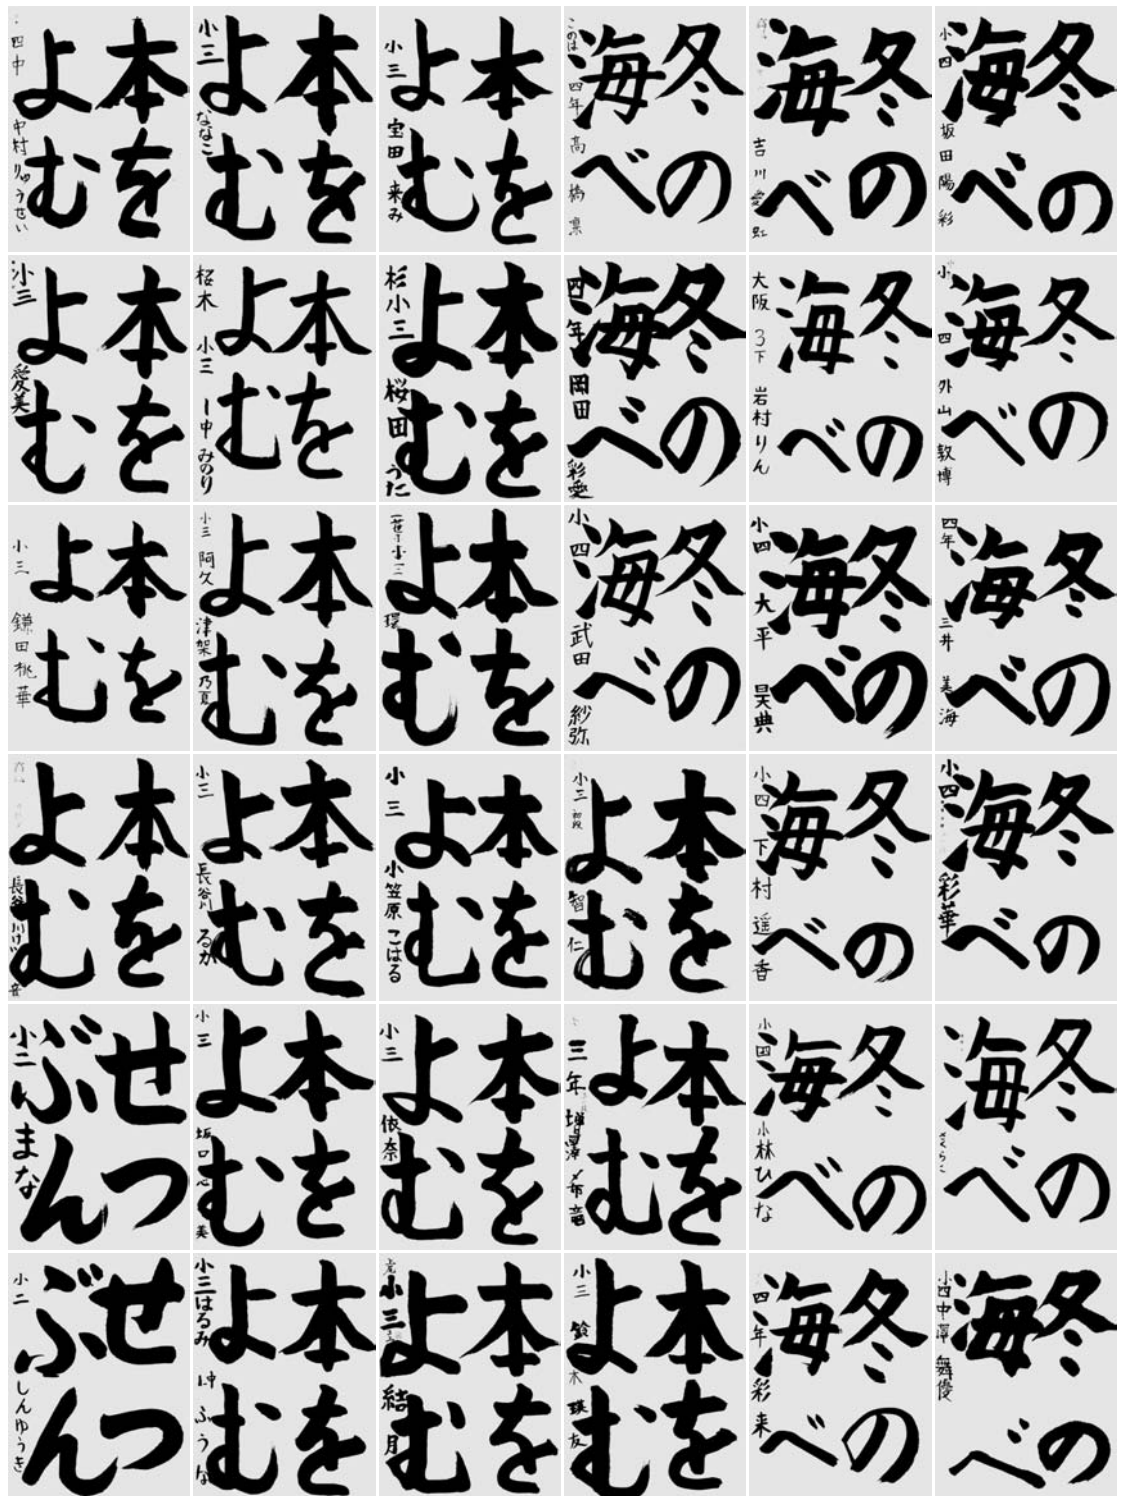 本を
よむ
四中 中村りゅうせい
本を
よむ
小三 ななこ
本を
よむ
小三 宝田 来み
冬の
海べ
このは 四年 高橋 凛
冬の
海べ
吉川愛虹
冬の
海べ
小四 坂田陽彩
本を
よむ
小三 愛美
本を
よむ
桜木 小三 みのり
本を
よむ
杉小三 桜田 うた
冬の
海べ
四年 岡田 彩愛
冬の
海べ
大阪 3下 岩村りん
冬の
海べ
小四 外山敦博
本を
よむ
小三 鎌田桃華
本を
よむ
小三 阿久津架乃夏
本を
よむ
小三 環
冬の
海べ
小四 武田 紗弥
冬の
海べ
小四 大平 昊典
冬の
海べ
四年 三井 美海
本を
よむ
長谷川
本を
よむ
小三 長谷川 るか
本を
よむ
小三 小笠原 こはる
本を
よむ
小三 初段 智仁
冬の
海べ
小四 下村 遥香
冬の
海べ
小四 彩華
せつ
ぶん
小二 まな
本を
よむ
小三 坂口心美
本を
よむ
小三 依奈
本を
よむ
三年
冬の
海べ
小四 小林ひな
冬の
海べ
せつ
ぶん
小二 しんゆうき
本を
よむ
小三はるみ ふうな
本を
よむ
小三 結月
本を
よむ
小三 鈴木 瑛友
冬の
海べ
四年 彩来
冬の
海べ
小四中澤 舞優